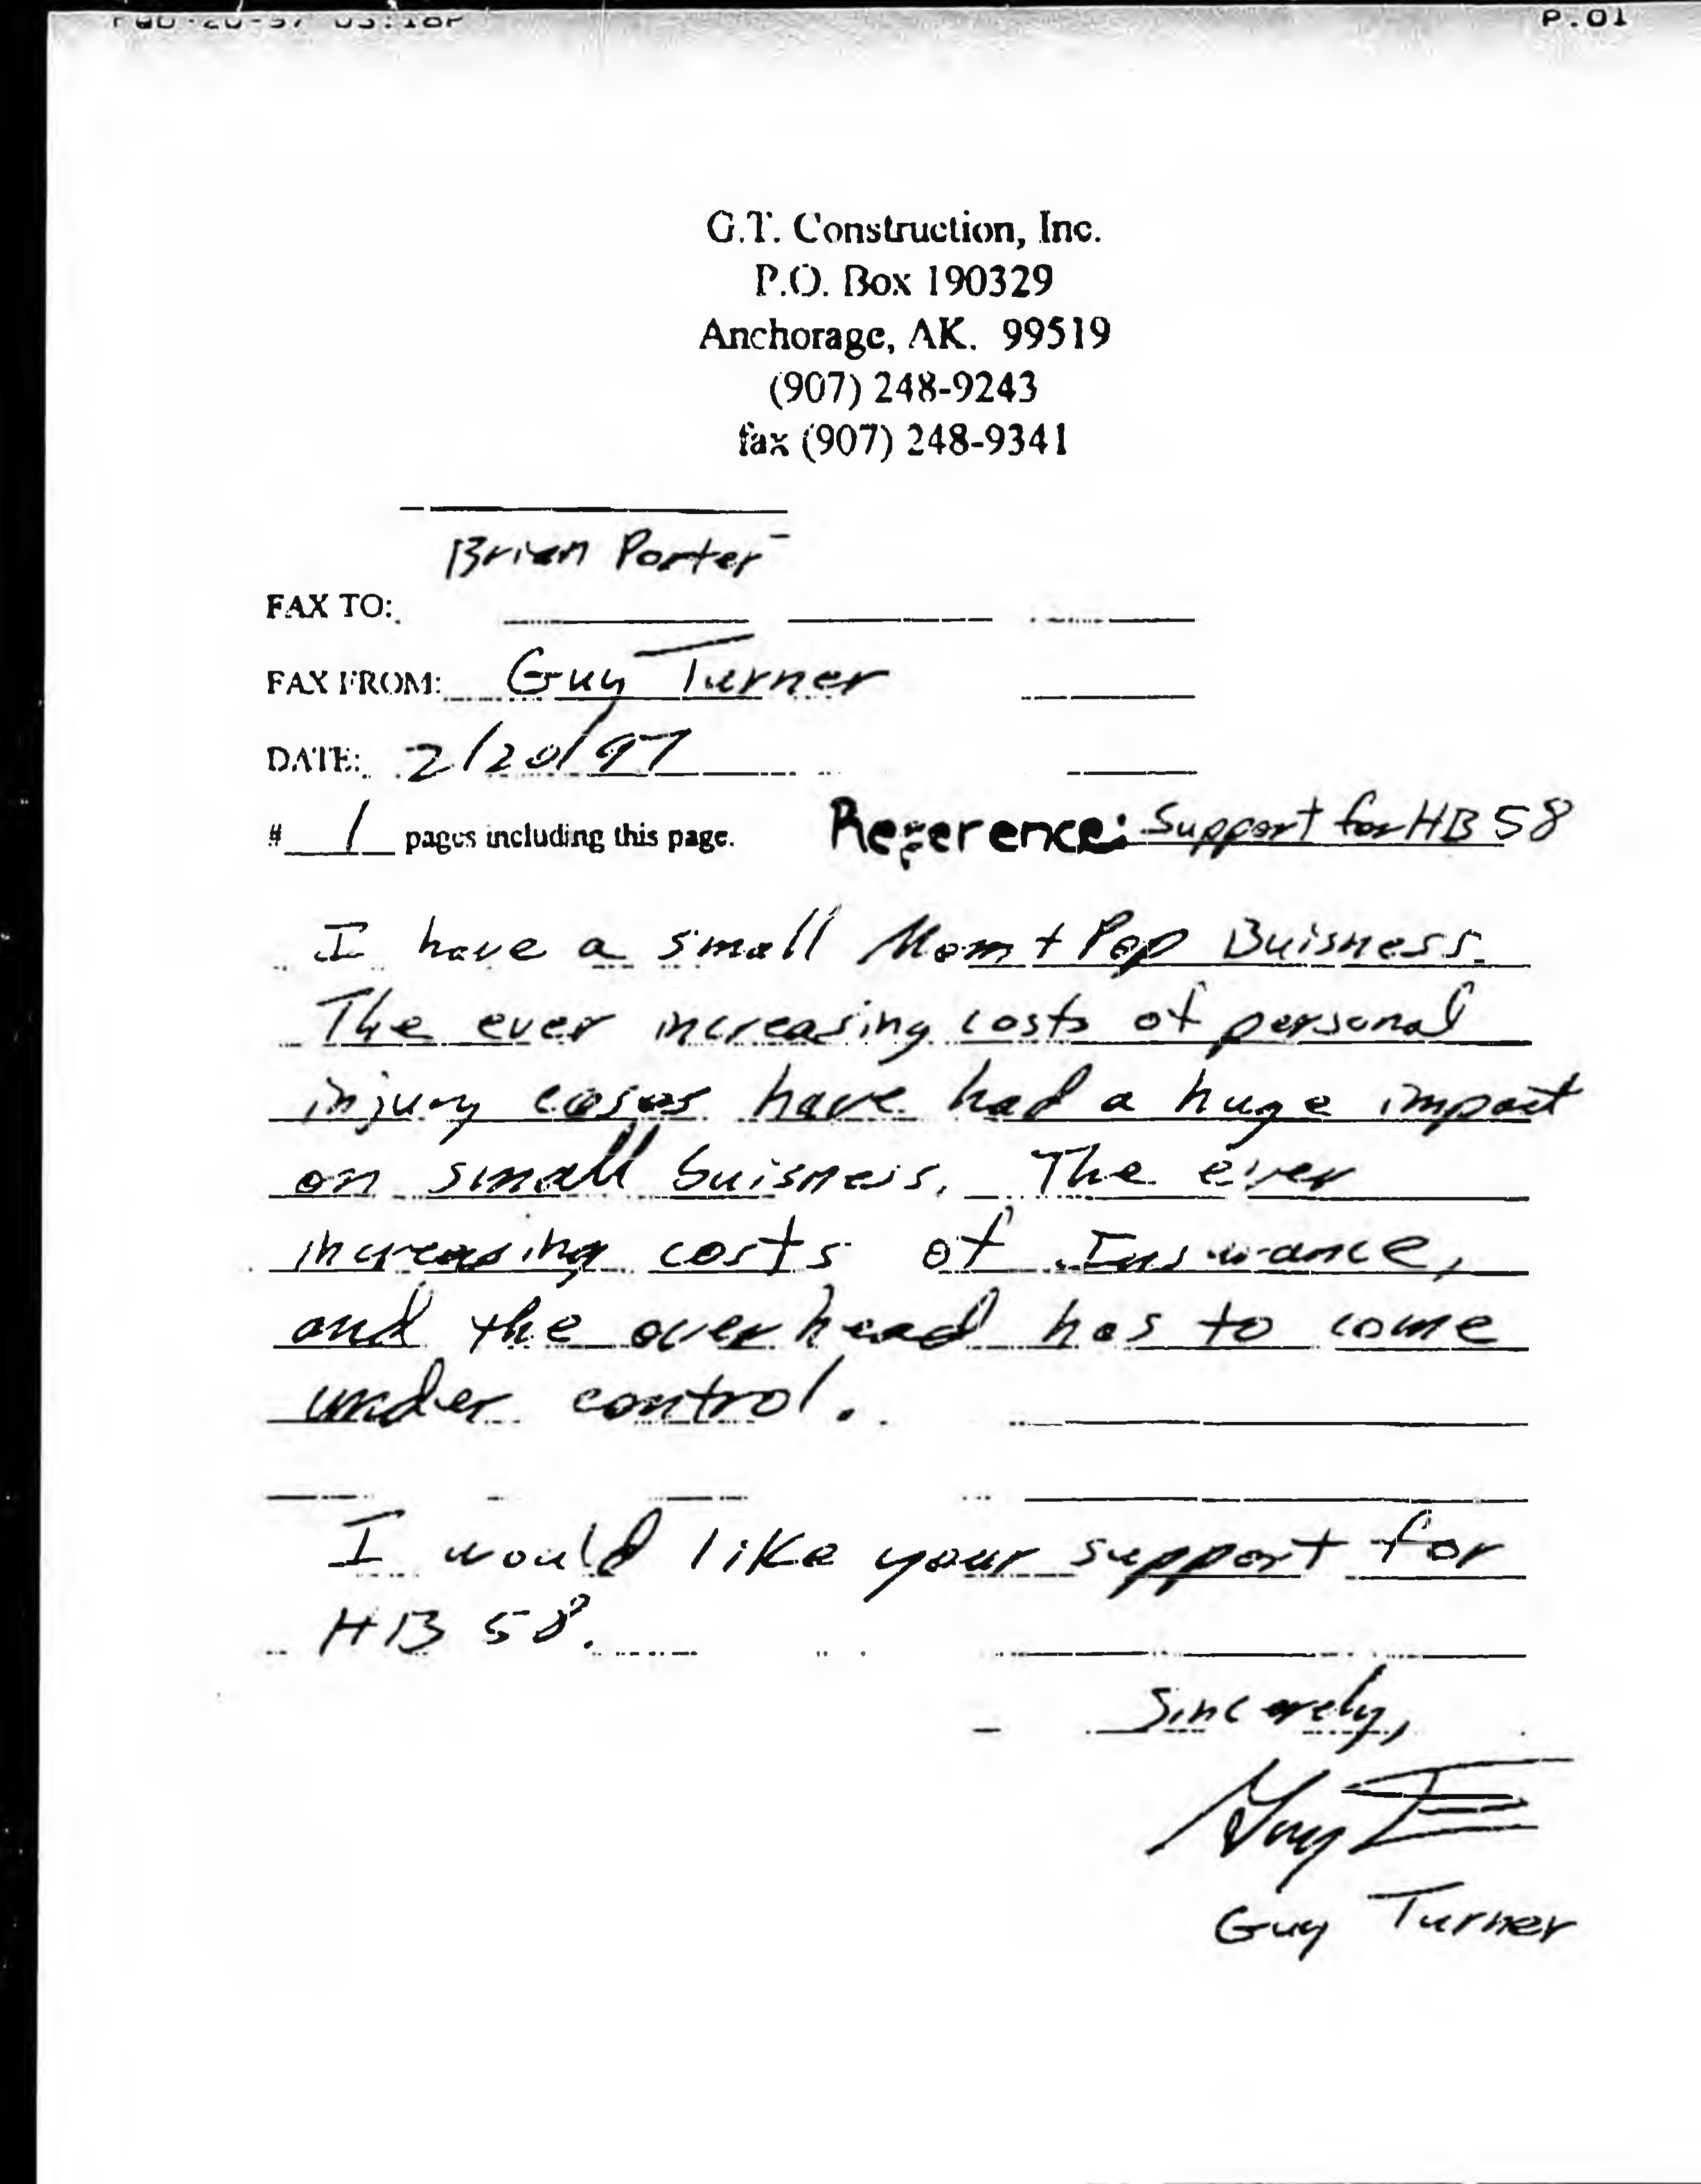 P.01
G.T. Construction, Inc.
P.O. Box 190329
Anchorage, AK. 99519
(907) 248-9243
fax (907) 248-9341
Brian Porter
FAX TO:
FAX FROM: Guy Turner
DATE: 2/20/97
# 1 pages including this page. Reference: Support for HB 58
I have a small Mom + Pop Buisness.
The ever increasing costs of personal
injury cases have had a huge impact
on small buisness. The ever
increasing costs of Insurance,
and the overhead has to come
under control.
I would like your support for
HB 58.
Sincerely,
Guy T
Guy Turner